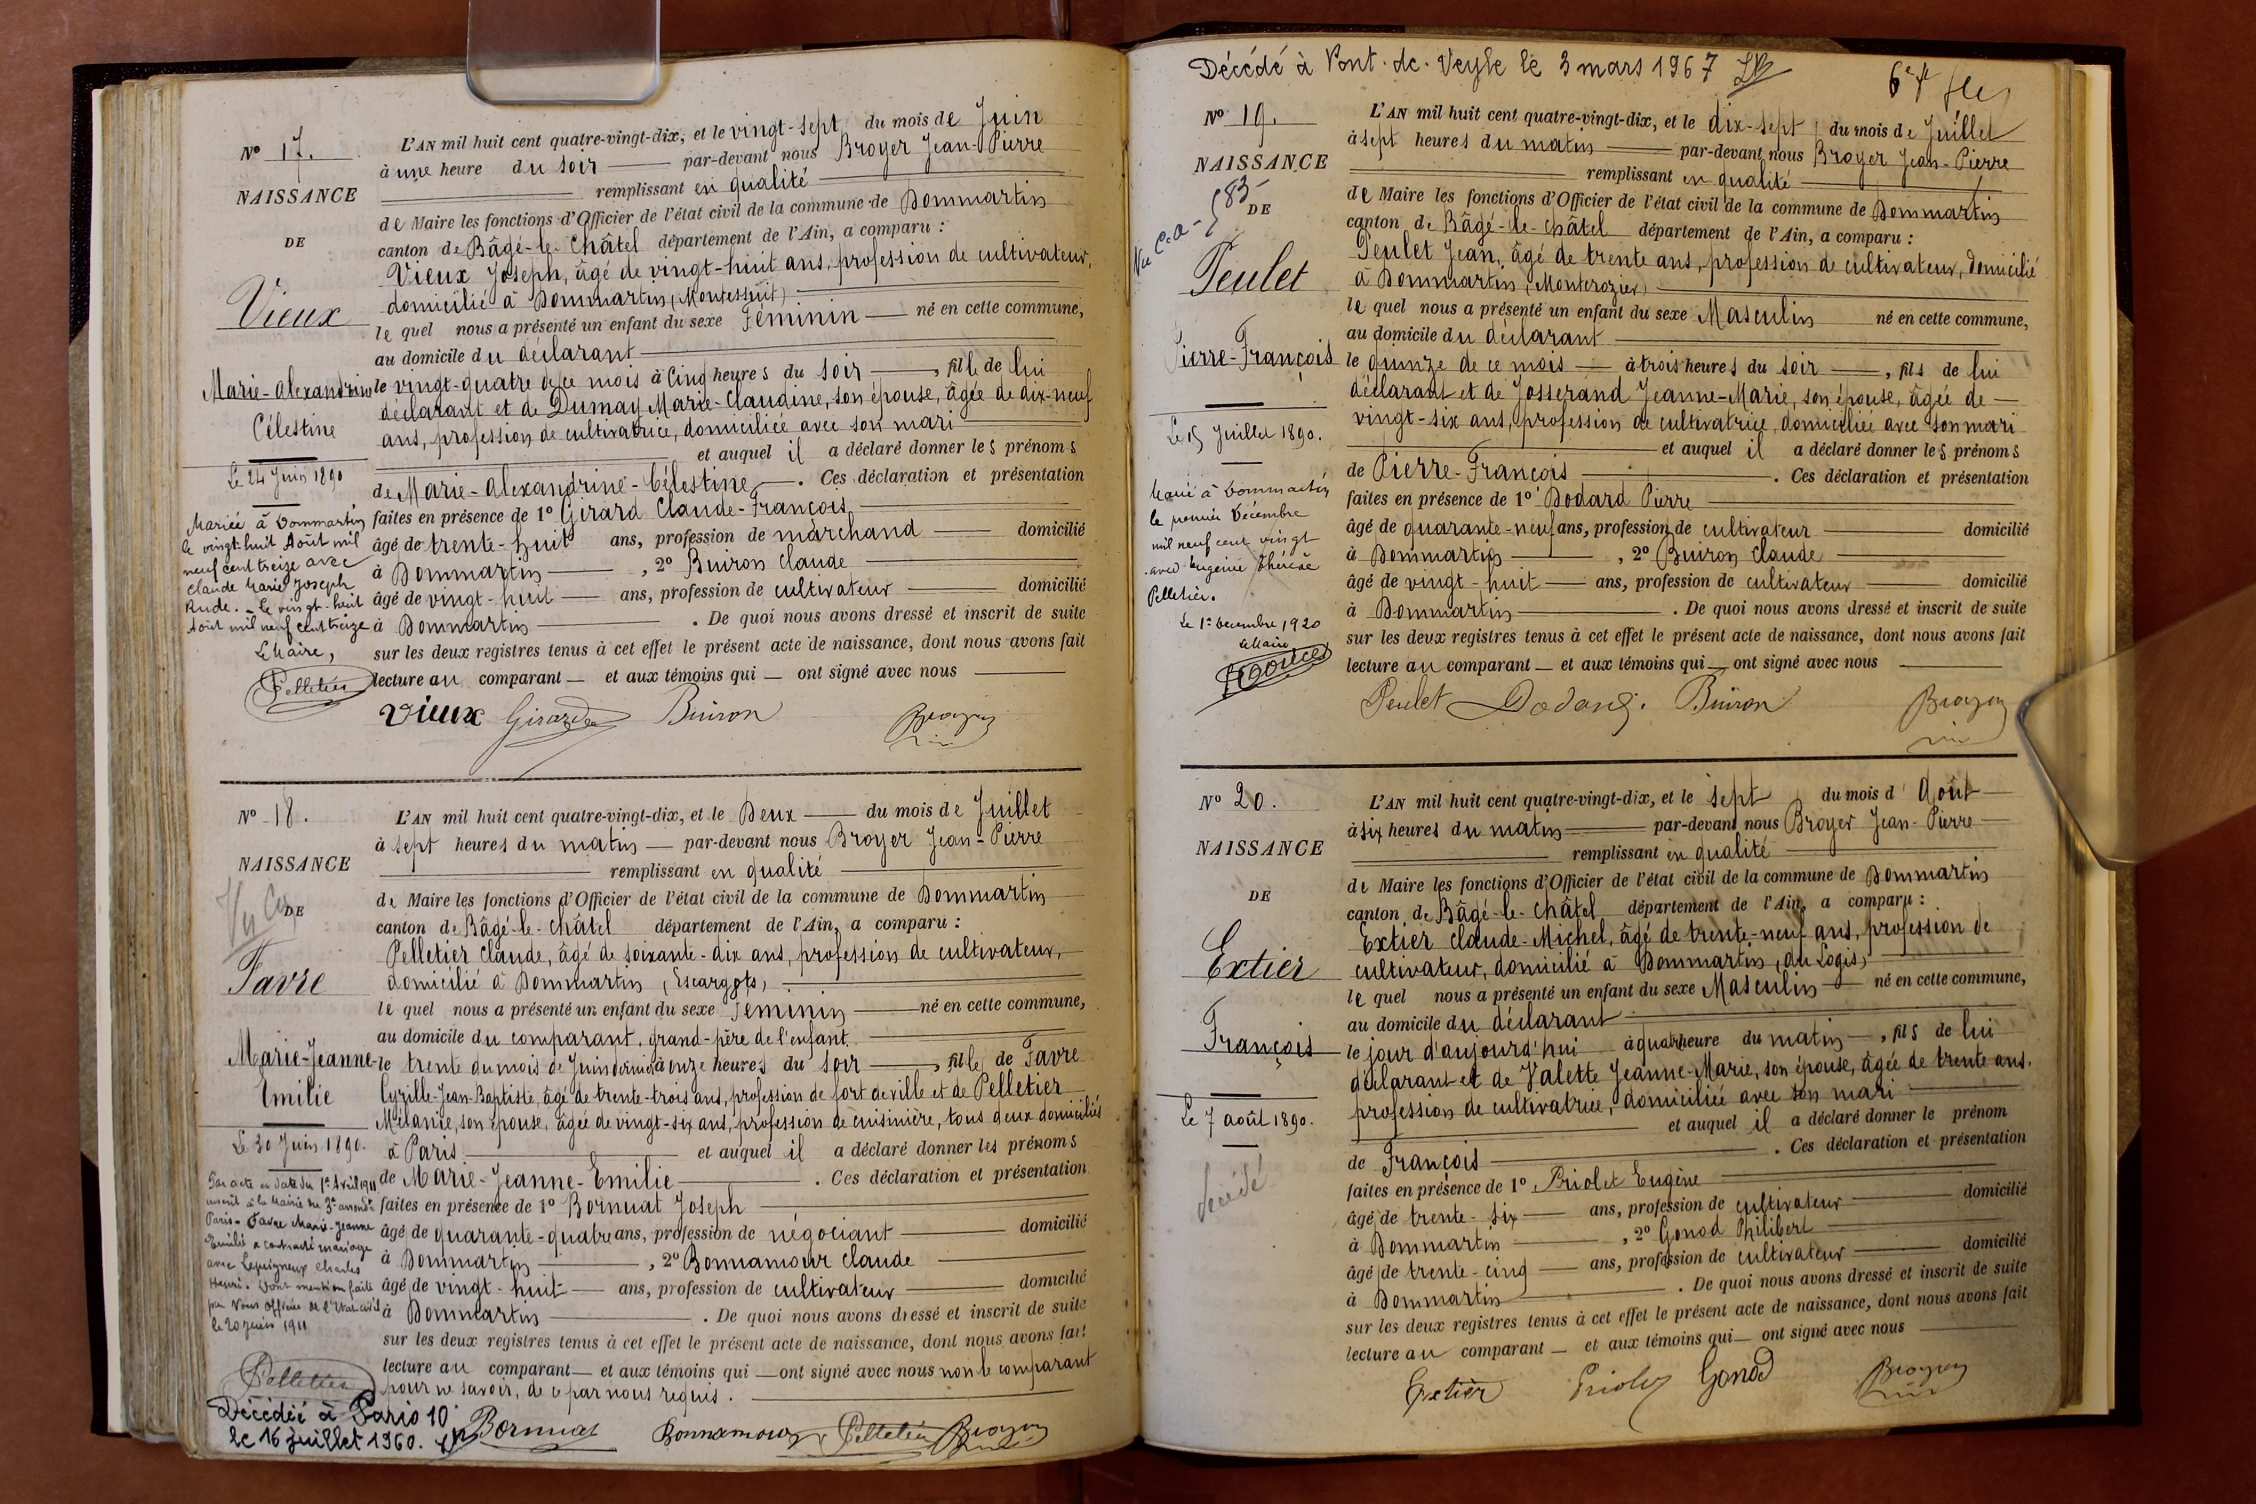 Nº 17.
NAISSANCE
DE
Vieux
Marie-Alexandrine
Célestine
Le 24 Juin 1890
Mariée à Dommartin
le vingt-huit Août mil
neuf cent treize avec
Claude Marie Joseph
Rude. - Le vingt-huit
Août mil neuf cent treize
Le Maire,
Pelletier
L'AN mil huit cent quatre-vingt-dix, et le vingt-sept du mois de Juin
à une heure du soir par-devant nous Broyer Jean-Pierre
remplissant en qualité
de Maire les fonctions d'Officier de l'état civil de la commune de Dommartin
canton de Bâgé-le-Châtel département de l'Ain, a comparu :
Vieux Joseph, âgé de vingt-huit ans, profession de cultivateur,
domicilié à Dommartin (Montessuit)
lequel nous a présenté un enfant du sexe Féminin né en cette commune,
au domicile du déclarant
le vingt-quatre de ce mois à cinq heures du soir, fille de lui
déclarant et de Dumay Marie-Claudine, son épouse, âgée de dix-neuf
ans, profession de cultivatrice, domiciliée avec son mari
et auquel il a déclaré donner les prénoms
de Marie-Alexandrine-Célestine. Ces déclaration et présentation
faites en présence de 1º Girard Claude-François
âgé de trente-huit ans, profession de marchand domicilié
à Dommartin, 2º Buiron Claude
âgé de vingt-huit ans, profession de cultivateur domicilié
à Dommartin. De quoi nous avons dressé et inscrit de suite
sur les deux registres tenus à cet effet le présent acte de naissance, dont nous avons fait
lecture au comparant et aux témoins qui ont signé avec nous
Vieux Girard Buiron Broyer
Nº 18.
NAISSANCE
DE
Favre
Marie-Jeanne-
Emilie
Le 30 Juin 1890.
Par acte en date du 1er Avril 1911
inscrit à la Mairie du 3e arrondt
Paris - Favre Marie-Jeanne
Emilie a contracté mariage
avec Lepigneux Charles
Henri. Dont mention faite
par Nous Officier de l'Etat-civil
le 20 juin 1911
Pelletier
Décédée à Paris 10e
le 16 juillet 1960.
L'AN mil huit cent quatre-vingt-dix, et le Deux du mois de Juillet
à sept heures du matin par-devant nous Broyer Jean-Pierre
remplissant en qualité
de Maire les fonctions d'Officier de l'état civil de la commune de Dommartin
canton de Bâgé-le-Châtel département de l'Ain, a comparu :
Pelletier Claude, âgé de soixante-dix ans, profession de cultivateur,
domicilié à Dommartin (Escargots)
lequel nous a présenté un enfant du sexe Féminin né en cette commune,
au domicile du comparant, grand-père de l'enfant.
le trente du mois de Juin dernier à onze heures du soir, fille de Favre
Cyrille-Jean-Baptiste, âgé de trente-trois ans, profession de fort de ville et de Pelletier
Mélanie, son épouse, âgée de vingt-six ans, profession de cuisinière, tous deux domiciliés
à Paris et auquel il a déclaré donner les prénoms
de Marie-Jeanne-Emilie. Ces déclaration et présentation
faites en présence de 1º Bornuat Joseph
âgé de quarante-quatre ans, profession de négociant domicilié
à Dommartin, 2º Bonnamour Claude
âgé de vingt-huit ans, profession de cultivateur domicilié
à Dommartin. De quoi nous avons dressé et inscrit de suite
sur les deux registres tenus à cet effet le présent acte de naissance, dont nous avons fait
lecture au comparant et aux témoins qui ont signé avec nous non le comparant
pour ne savoir, de ce par nous requis.
Bornuat Bonnamour Pelletier Broyer
Décédé à Pont-de-Veyle le 3 mars 1967
Nº 19.
NAISSANCE
DE
Peulet
Pierre-François
Le 15 Juillet 1890.
Marié à Dommartin
le premier Décembre
mil neuf cent vingt
avec Eugénie Thérèse
Pelletier.
Le 1er Décembre 1920
Le Maire
L'AN mil huit cent quatre-vingt-dix, et le dix-sept du mois de Juillet
à sept heures du matin par-devant nous Broyer Jean-Pierre
remplissant en qualité
de Maire les fonctions d'Officier de l'état civil de la commune de Dommartin
canton de Bâgé-le-Châtel département de l'Ain, a comparu :
Peulet Jean, âgé de trente ans, profession de cultivateur, domicilié
à Dommartin (Monterozier)
lequel nous a présenté un enfant du sexe Masculin né en cette commune,
au domicile du déclarant
le quinze de ce mois à trois heures du soir, fils de lui
déclarant et de Josserand Jeanne-Marie, son épouse, âgée de
vingt-six ans, profession de cultivatrice, domiciliée avec son mari
et auquel il a déclaré donner les prénoms
de Pierre-François. Ces déclaration et présentation
faites en présence de 1º Dodard Pierre
âgé de quarante-neuf ans, profession de cultivateur domicilié
à Dommartin, 2º Buiron Claude
âgé de vingt-huit ans, profession de cultivateur domicilié
à Dommartin. De quoi nous avons dressé et inscrit de suite
sur les deux registres tenus à cet effet le présent acte de naissance, dont nous avons fait
lecture au comparant et aux témoins qui ont signé avec nous
Peulet Dodard Buiron Broyer
Nº 20.
NAISSANCE
DE
Extier
François
Le 7 août 1890.
décédé
L'AN mil huit cent quatre-vingt-dix, et le sept du mois d'Août
à six heures du matin par-devant nous Broyer Jean-Pierre
remplissant en qualité
de Maire les fonctions d'Officier de l'état civil de la commune de Dommartin
canton de Bâgé-le-Châtel département de l'Ain, a comparu :
Extier Claude-Michel, âgé de trente-neuf ans, profession de
cultivateur, domicilié à Dommartin, (du Logis)
lequel nous a présenté un enfant du sexe Masculin né en cette commune,
au domicile du déclarant
le jour d'aujourd'hui à quatre heure du matin, fils de lui
déclarant et de Valette Jeanne-Marie, son épouse, âgée de trente ans.
profession de cultivatrice, domiciliée avec son mari
et auquel il a déclaré donner le prénom
de François. Ces déclaration et présentation
faites en présence de 1º Briolet Eugène
âgé de trente-six ans, profession de cultivateur domicilié
à Dommartin, 2º Gonod Philibert
âgé de trente-cinq ans, profession de cultivateur domicilié
à Dommartin. De quoi nous avons dressé et inscrit de suite
sur les deux registres tenus à cet effet le présent acte de naissance, dont nous avons fait
lecture au comparant et aux témoins qui ont signé avec nous
Extier Briolet Gonod Broyer